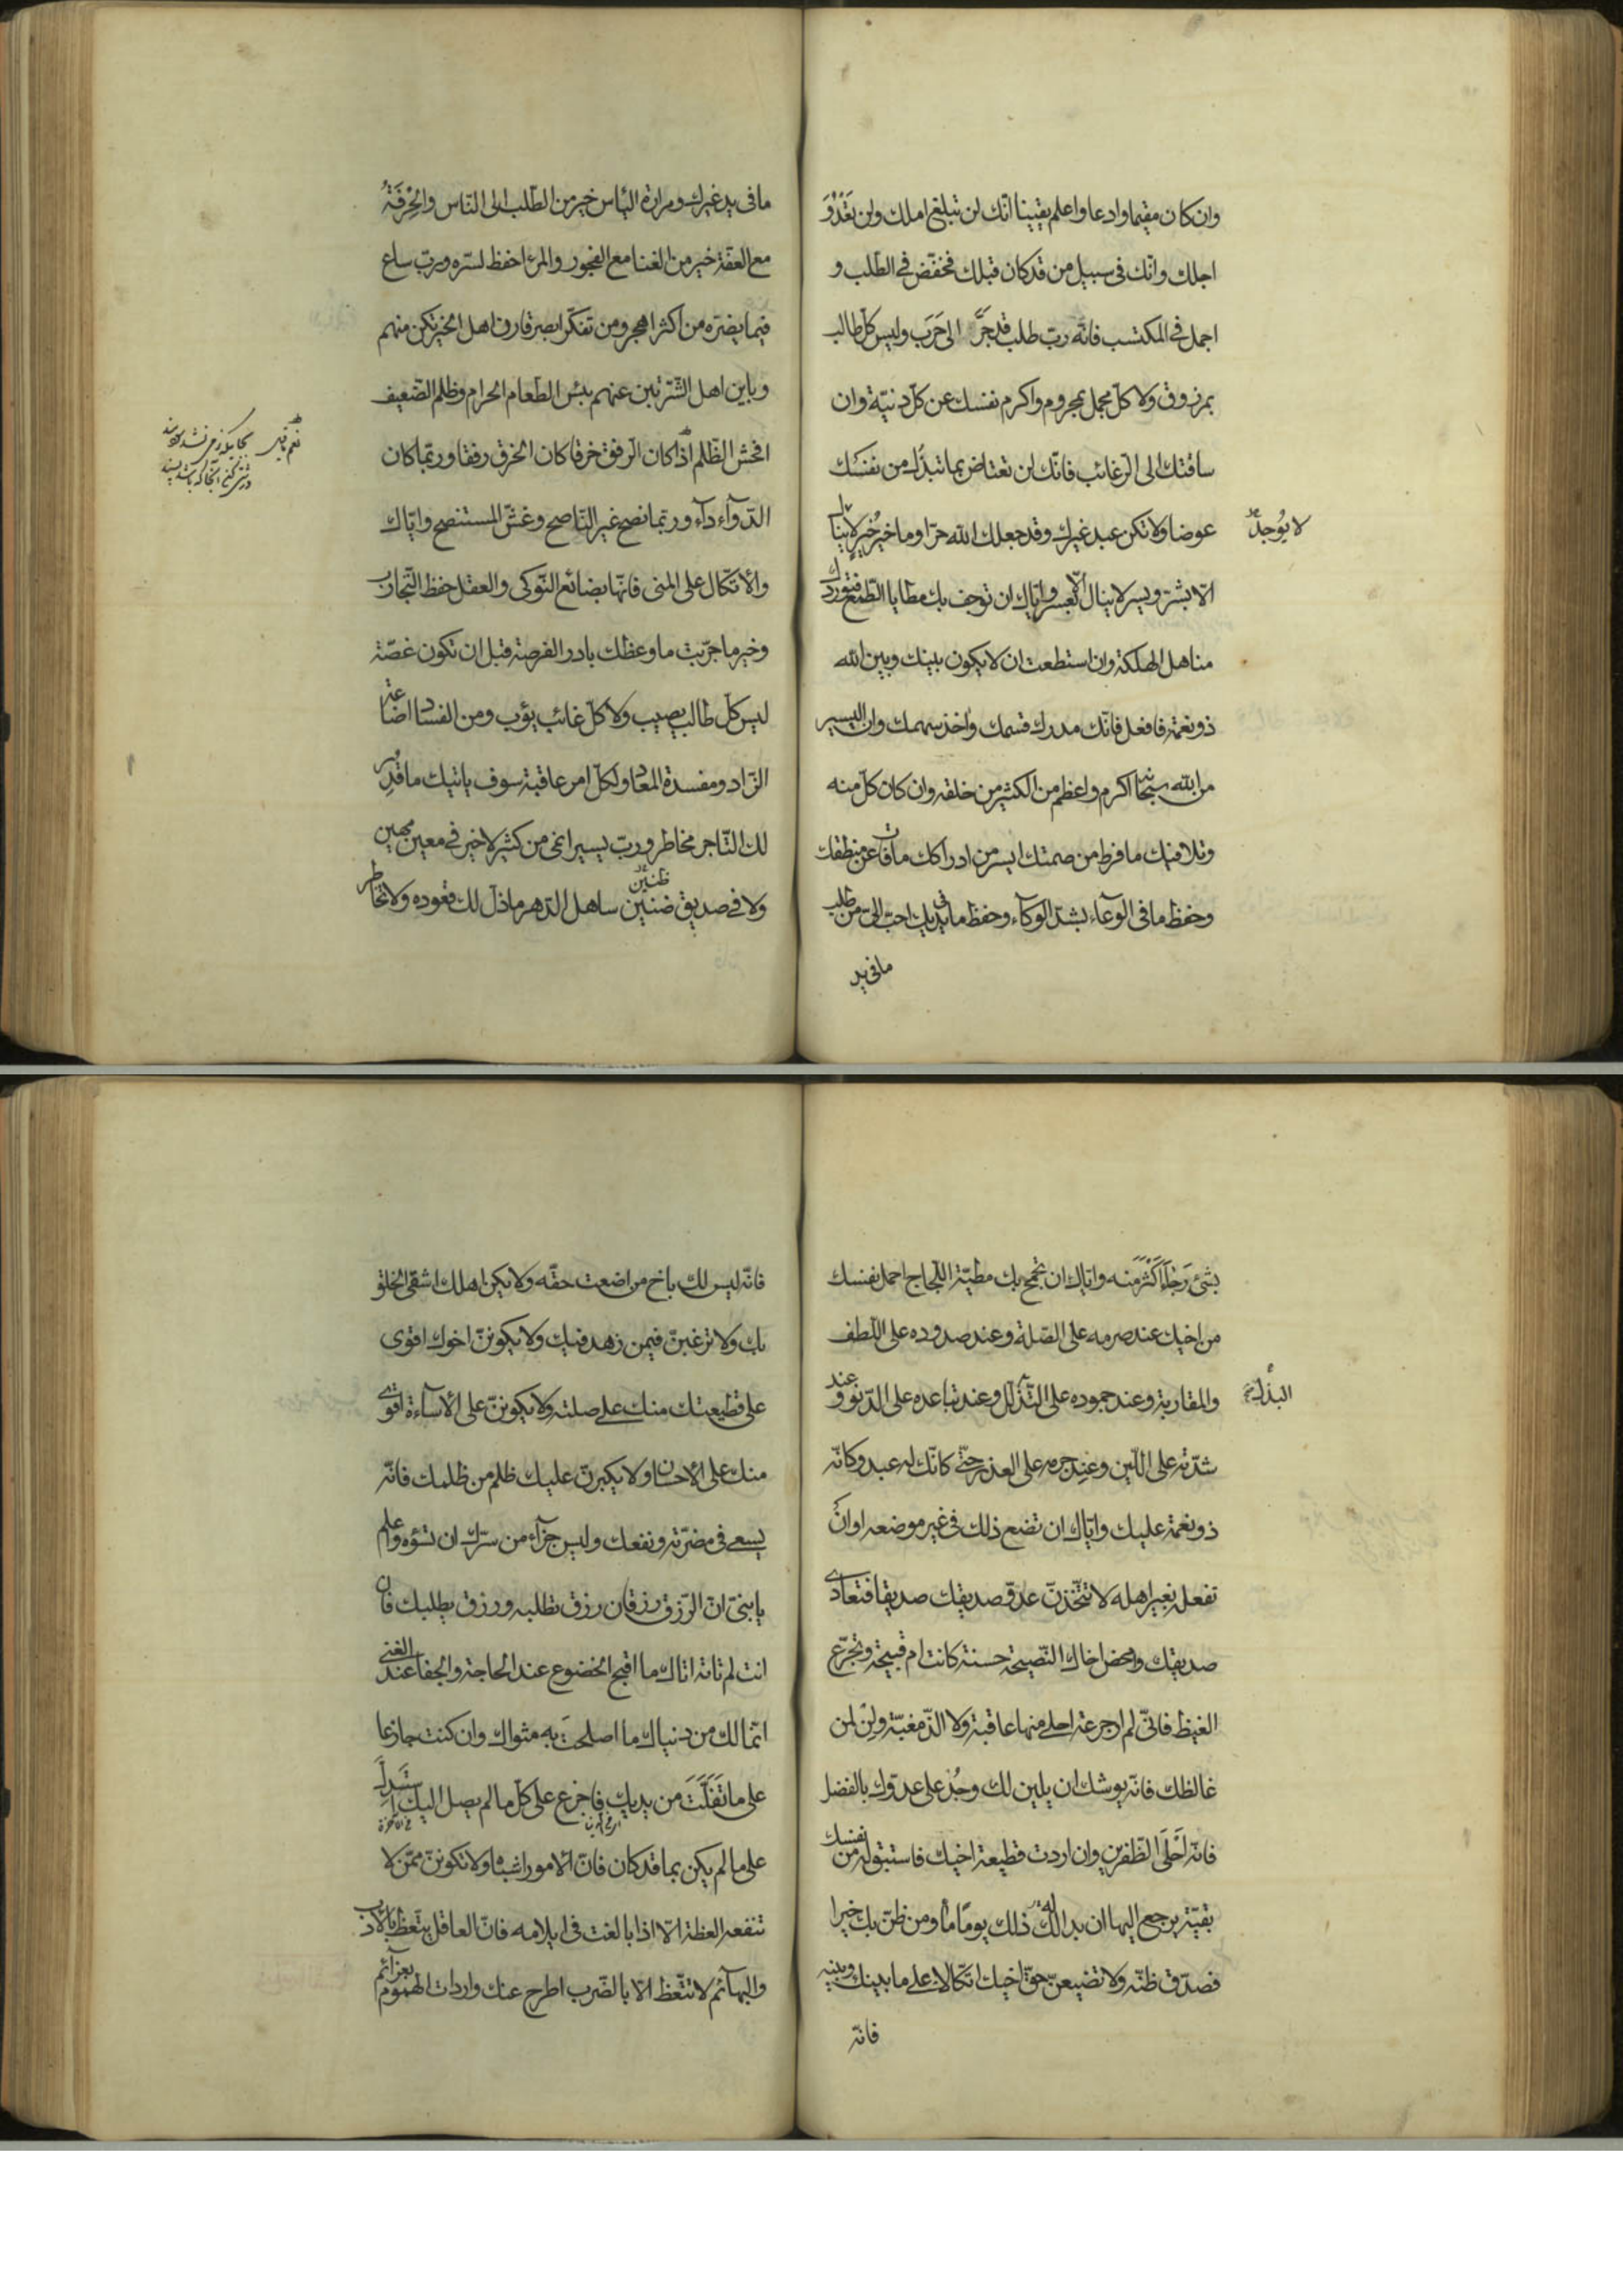 وان كان مقيما وادعا واعلم يقينا انّك لن تبلغ املك ولن تَعْدُوَ
اجلك وانّك فى سبيل من قد كان قبلك فخفّض فى الطّلب و
اجمل فى المكتسب فانّه ربّ طلب قد جَرَّ الى حَرَب وليس كلّ طالب
بمرزوق ولا كلّ مجمل بمحروم واكرم نفسك عن كلّ دنيّة وان
ساقتك الى الرّغائب فانّك لن تعتاض بما تبذل من نفسك
عوضا ولا تكن عبد غيرك وقد جعلك الله حرّا وما خيرُ خيرٍ لا ينال
لا يُوجد
الّا بشرّ ويسر لا ينال الّا بعسر وايّاك ان توجف بك مطايا الطّمع فتوردك
مناهل الهلكة وان استطعت ان لا يكون بينك وبين الله
ذو نعمة فافعل فانّك مدرك قسمك واخذ سهمك وان اليسير
من الله سبحانه اكرم واعظم من الكثير من خلقه وان كان كلّ منه
وتلافيك ما فرط من صمتك ايسر من ادراكك ما فات عن منطقك
وحفظ ما فى الوعآء بشدّ الوكآء وحفظ ما فى يديك احبّ الىّ من طلب
ما فى يد
ما فى يد غيرك ومرارة اليأس خير من الطّلب الى النّاس والحِرْفَةُ
مع العفّة خير من الغنا مع الفجور والمرء احفظ لسرّه وربّ ساع
فيما يضرّه من اكثر اهجر ومن تفكّر ابصر قارن اهل الخير تكن منهم
وباين اهل الشّرّ تبن عنهم بئس الطّعام الحرام وظلم الضّعيف
افحش الظّلم اذا كان الرّفق خرقا كان الخرق رفقا وربّما كان
الدّوآء دآء وربّما نصح غير النّاصح وغشّ المستنصح وايّاك
والاتّكال على المنى فانّها بضائع النّوكى والعقل حفظ التّجارب
وخير ما جرّبت ما وعظك بادر الفرصة قبل ان تكون غصّة
ليس كلّ طالب يصيب ولا كلّ غائب يؤب ومن الفساد اضاعة
الزّاد ومفسدة المعاد ولكلّ امر عاقبة سوف ياتيك ما قُدِر
لك التّاجر مخاطر وربّ يسير انمى من كثير لا خير فى معين مهين
ظنين
ولا فى صديق ضنين ساهل الدّهر ما ذلّ لك قعوده ولا تخاطر
بشئ رَجَآءَ اَكْثَرَ منه وايّاك ان تجمح بك مطيّة اللّجاج احمل نفسك
من اخيك عند صرمه على الصّلة وعند صدوده على اللّطف
والمقاربة وعند جموده على التّذلّل وعند تباعده على الدّنو وعند
البذل
شدّته على اللّين وعند جرمه على العذر حتّى كانّك له عبد وكانّه
ذو نعمة عليك وايّاك ان تضع ذلك فى غير موضعه او ان
تفعله بغير اهله لا تتّخذنّ عدوّ صديقك صديقا فتعادى
صديقك وامحض اخاك النّصيحة حسنة كانت ام قبيحة وتجرّع
الغيظ فانّى لم ار جرعة احلى منها عاقبة ولا الذّ مغبّة ولِنْ لمن
غالظك فانّه يوشك ان يلين لك وجُدْ على عدوّك بالفضل
فانّه اَحْلَى الظّفرين وان اردت قطيعة اخيك فاستبق له من نفسك
بقيّة يرجع اليها ان بدا له ذلك يومًا مّا ومن ظنّ بك خيرا
فصدّق ظنّه ولا تضيعنّ حقّ اخيك اتّكالا على ما بينك وبينه
فانّه
فانّه ليس لك باخ من اضعت حقّه ولا يكن اهلك اشقى الخلق
بك ولا ترغبنّ فيمن زهد فيك ولا يكوننّ اخوك اقوى
على قطيعتك منك على صلته ولا يكوننّ على الاساءة اقوى
منك على الاحسان ولا يكبرنّ عليك ظلم من ظلمك فانّه
يسعى فى مضرّته ونفعك وليس جزآء من سرّك ان تسؤه واعلم
يا بنىّ انّ الرّزق رزقان رزق تطلبه ورزق يطلبك فان
انت لم تاته اتاك ما اقبح الخضوع عند الحاجة والجفا عند الغنى
انّما لك من دنياك ما اصلحت به مثواك وان كنت جازعا
على ما تَفَلَّتَ من يديك فاجزع على كلّ ما لم يصل اليك اِسْتَدِلَّ
على ما لم يكن بما قد كان فانّ الامور اشباه ولا تكوننّ ممّن لا
تنفعه العظة الّا اذا بالغت فى ايلامه فانّ العاقل يتّعظ بالادب
والبهآئم لا تتّعظ الّا بالضّرب اطرح عنك واردات الهموم بعزآئم